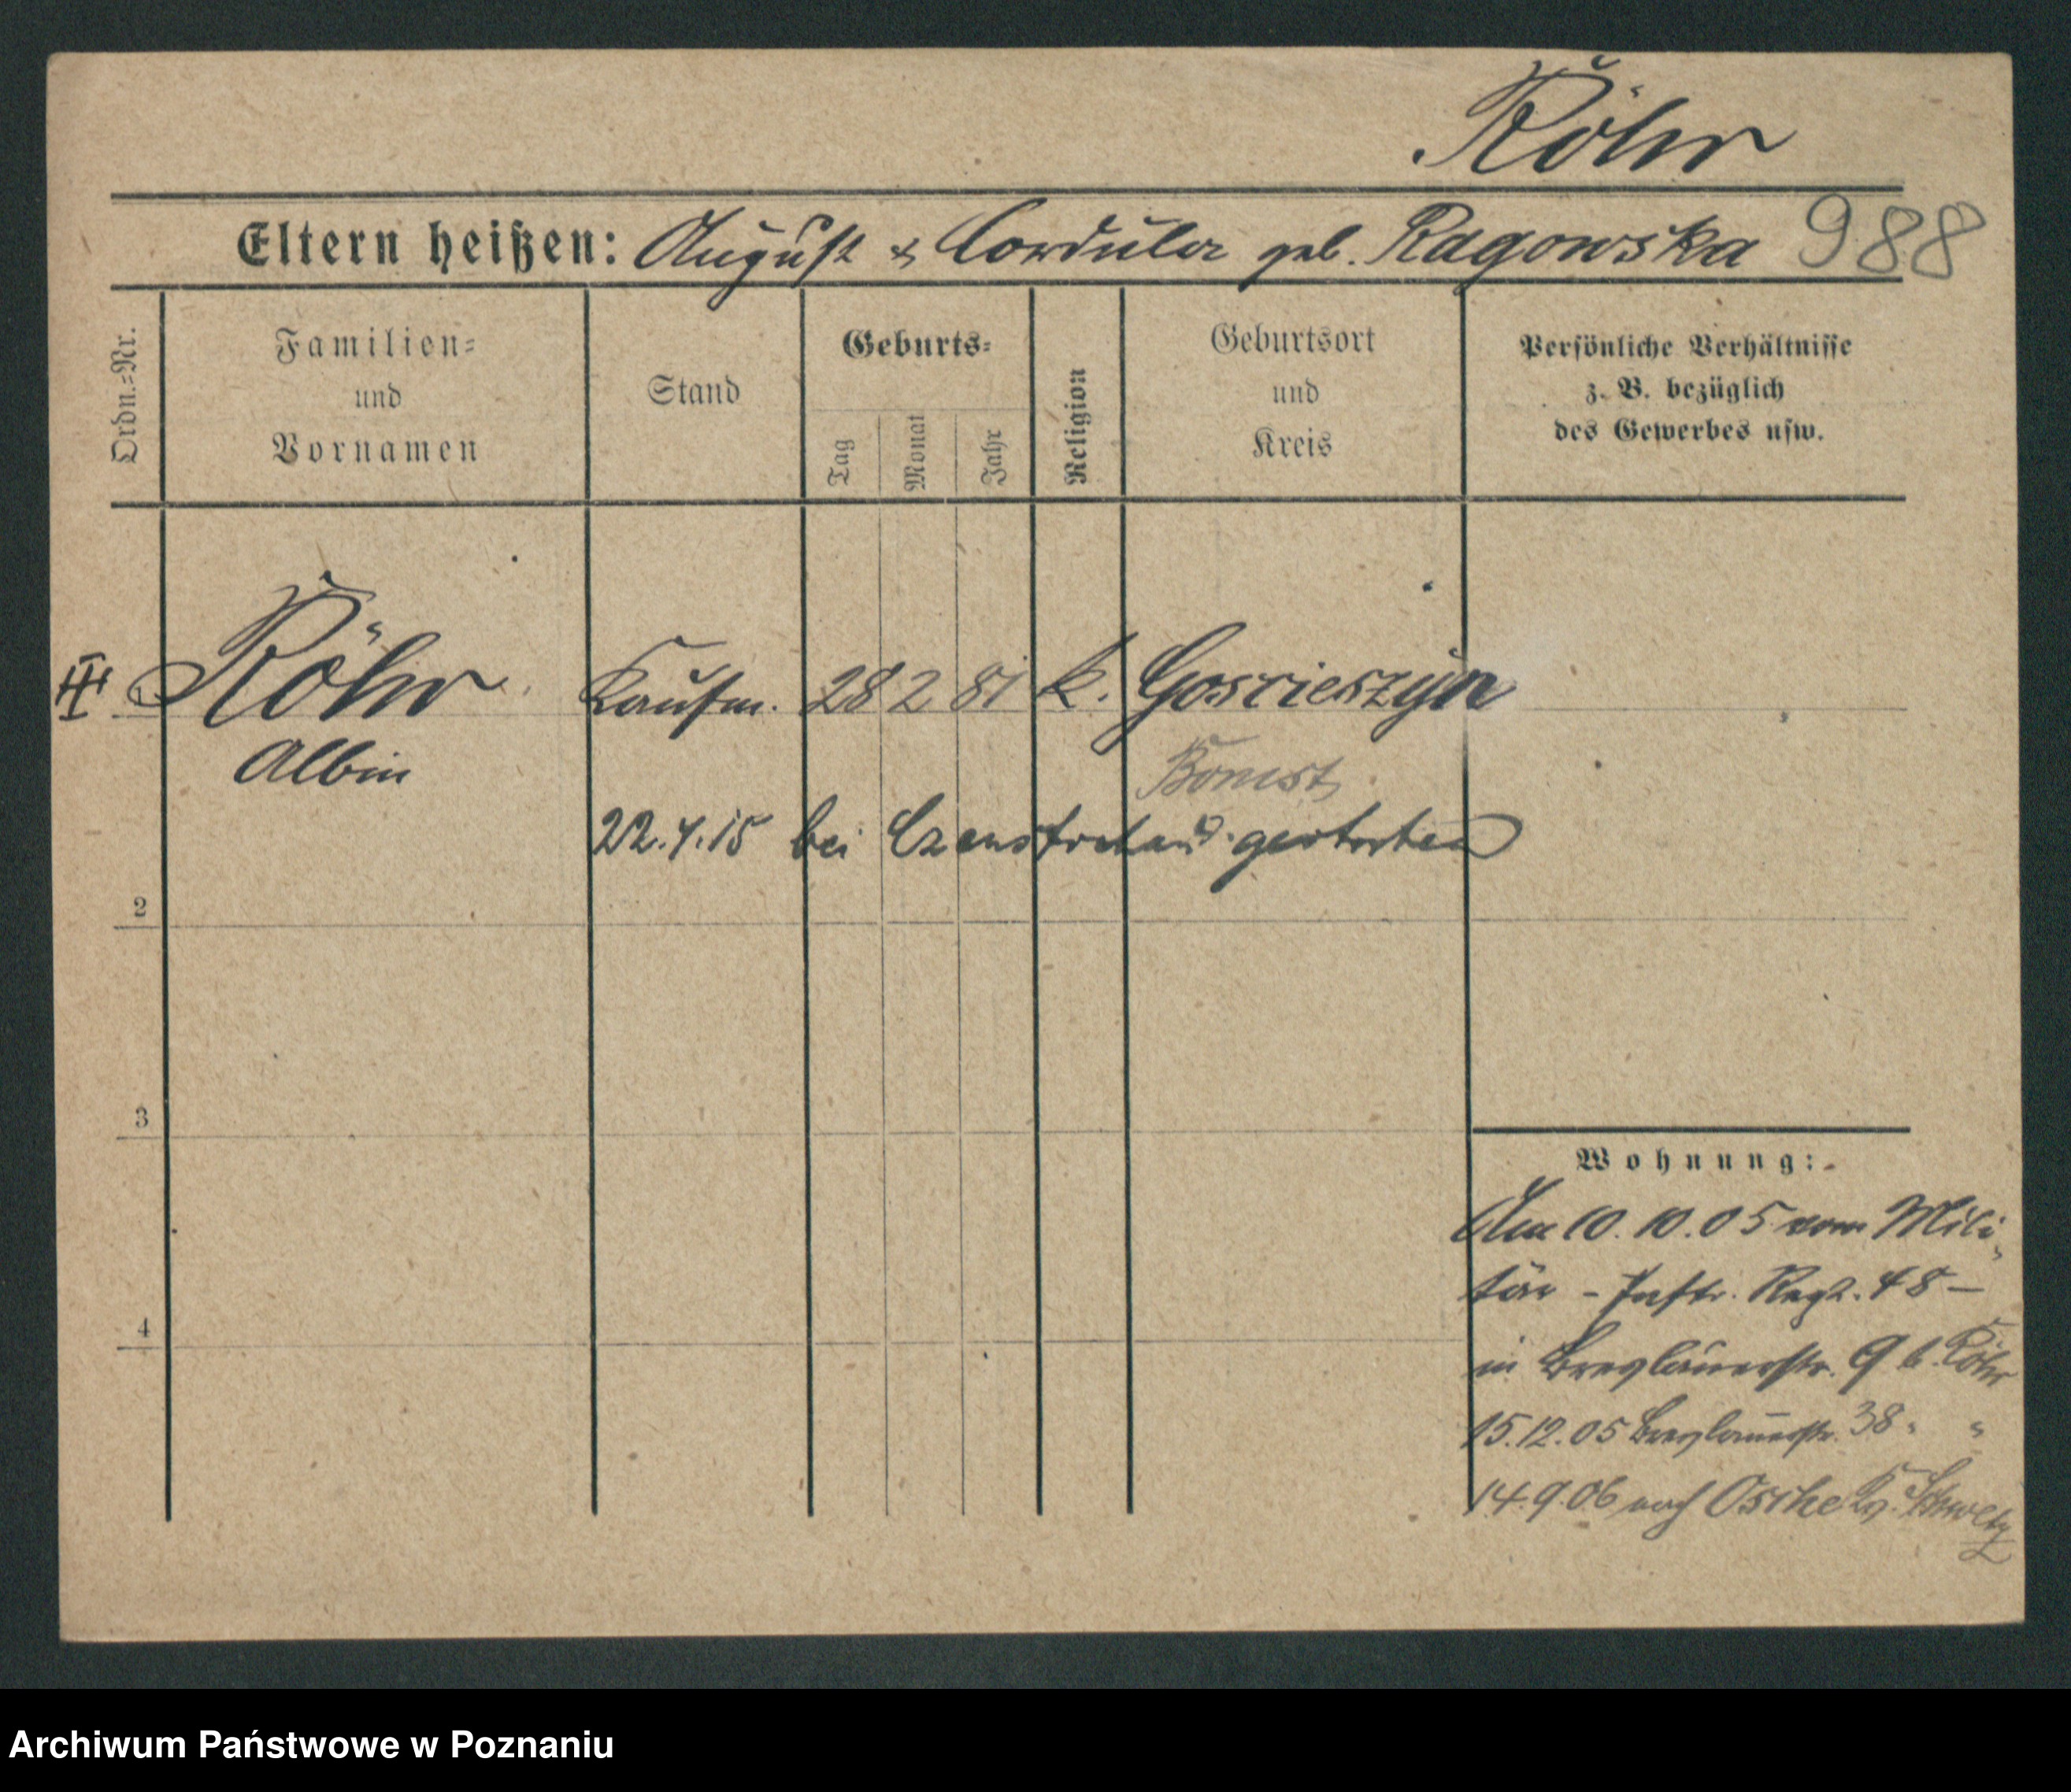 Röhr
Eltern heißen: August & Cordula geb. Ragowska 988
Ordn.=Nr.
Familien=
und
Vornamen
Stand
Geburts=
Tag
Monat
Jahr
Religion
Geburtsort
und
Kreis
Persönliche Verhältnisse
z. B. bezüglich
des Gewerbes usw.
III 1 Röhr Kaufm. 28 2 81 k. Goscieszyn
Albin Bomst
22.4.15 bei gestorben
2
3
4
Wohnung:
Am 10.10.05 vom Mili
tär - Inftr. Regt. 48 -
in Breslauerstr. 9 b. Röhr
15.12.05 Breslauerstr. 38 " "
14.9.06 nach Osche Kr. Schwetz
Archiwum Państwowe w Poznaniu